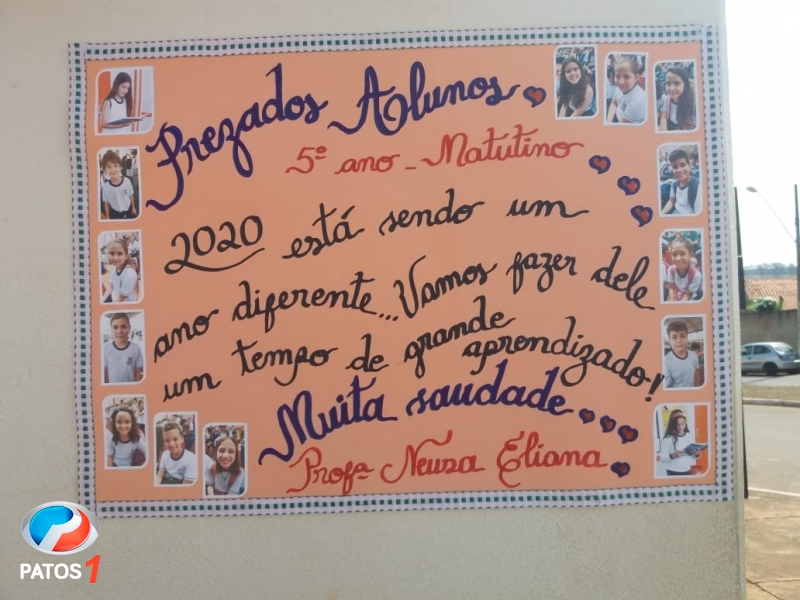 Prezados Alunos
5º ano - Matutino
2020 está sendo um
ano diferente... Vamos fazer dele
um tempo de grande aprendizado!
Muita saudade...
Profª Neusa Eliana
PATOS 1